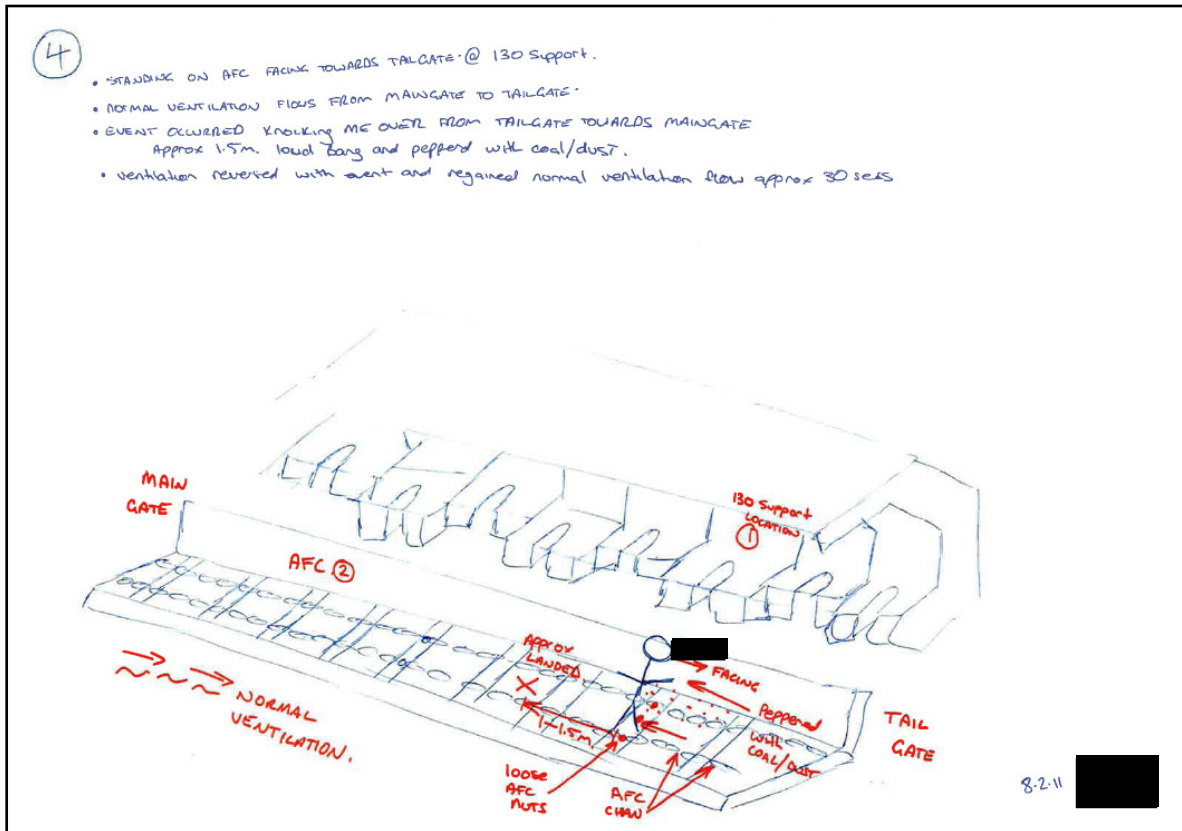 4
• STANDING ON AFC FACING TOWARDS TAILGATE. @ 130 Support.
• NORMAL VENTILATION FLOWS FROM MAINGATE TO TAILGATE.
• EVENT OCCURRED KNOCKING ME OVER FROM TAILGATE TOWARDS MAINGATE
Approx 1.5m. loud bang and pepperd with coal/dust.
• ventilation reversed with event and regained normal ventilation flow approx 30 secs
MAIN
GATE
130 Support
LOCATION
1
AFC 2
APPROX
LANDED
FACING
Peppered
with
COAL/DUST
TAIL
GATE
1-1.5m.
NORMAL
VENTILATION.
loose
AFC
NUTS
AFC
CHAIN
8.2.11